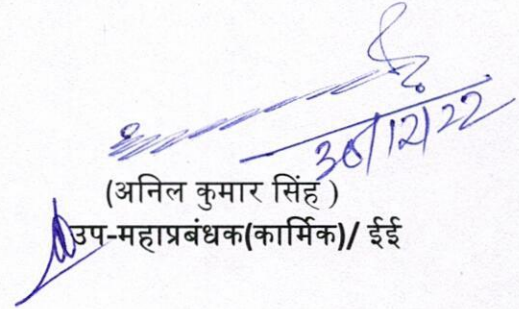 30/12/22
(अनिल कुमार सिंह )
उप-महाप्रबंधक(कार्मिक)/ ईई